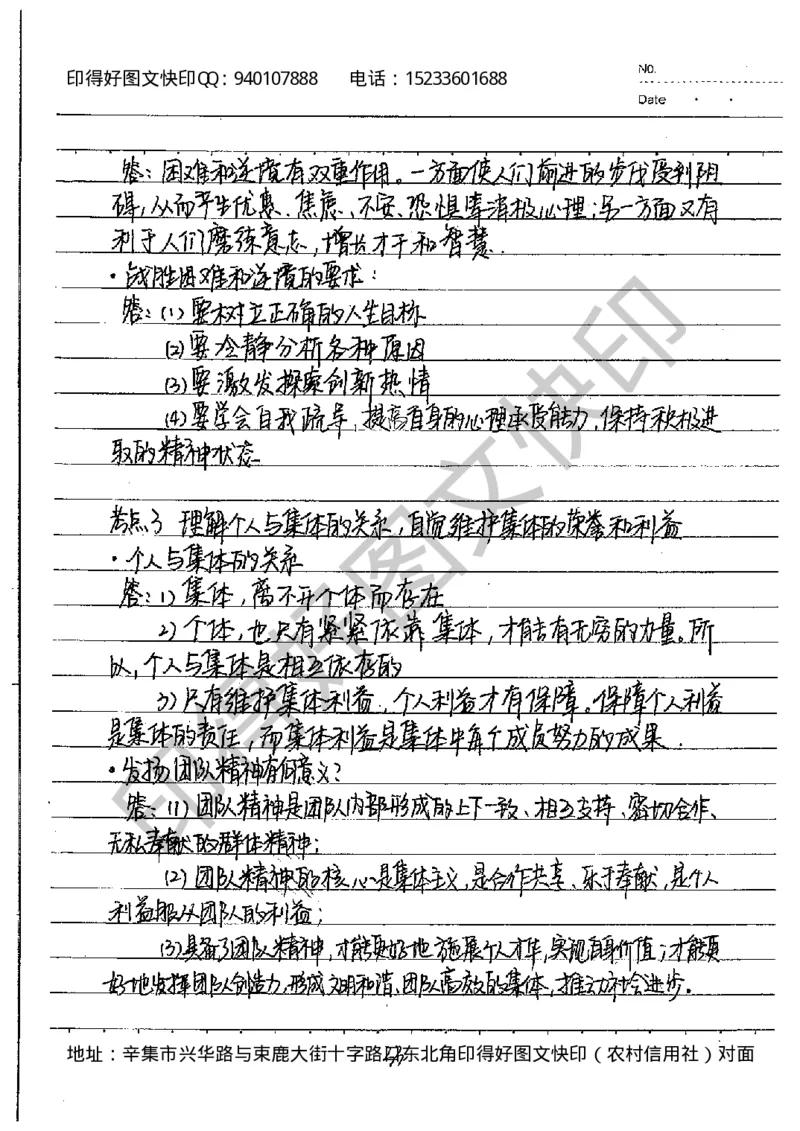 印得好图文快印QQ：940107888 电话：15233601688
No.
Date
答：困难和逆境有双重作用。一方面使人们前进的步伐受到阻
碍，从而产生忧患、焦虑、不安、恐惧等消极心理；另一方面又有
利于人们磨练意志，增长才干和智慧.
·战胜困难和逆境的要求：
答：(1)要树立正确的人生目标
(2)要冷静分析各种原因
(3)要激发探索创新热情
(4)要学会自我疏导，提高自身的心理承受能力，保持积极进
取的精神状态
考点3 理解个人与集体的关系，自觉维护集体的荣誉和利益
·个人与集体的关系
答：1)集体，离不开个体而存在
2)个体，也只有紧紧依靠集体，才能有无穷的力量。所
以，个人与集体是相互依存的
3)只有维护集体利益，个人利益才有保障。保障个人利益
是集体的责任，而集体利益是集体中每个成员努力的成果.
·发扬团队精神有何意义？
答：(1)团队精神是团队内部形成的上下一致、相互支持、密切合作、
无私奉献的群体精神；
(2)团队精神的核心是集体主义，是合作共享、乐于奉献，是个人
利益服从团队的利益；
(3)具备了团队精神，才能更好地施展个人才华，实现自身价值；才能更
好地发挥团队创造力，形成文明和谐、团队高效的集体，推动社会进步。
地址：辛集市兴华路与束鹿大街十字路口东北角印得好图文快印（农村信用社）对面
印得好图文快印